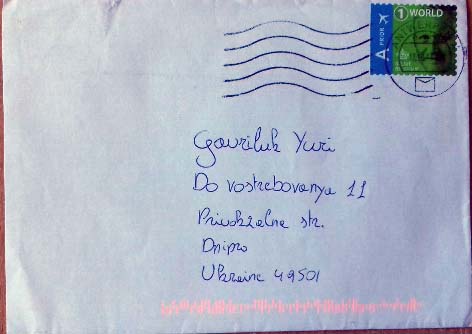 1 WORLD
A PRIOR
Gavriluk Yuri
Do vostrebovanya 11
Privokzalna str.
Dnipro
Ukraine 49501